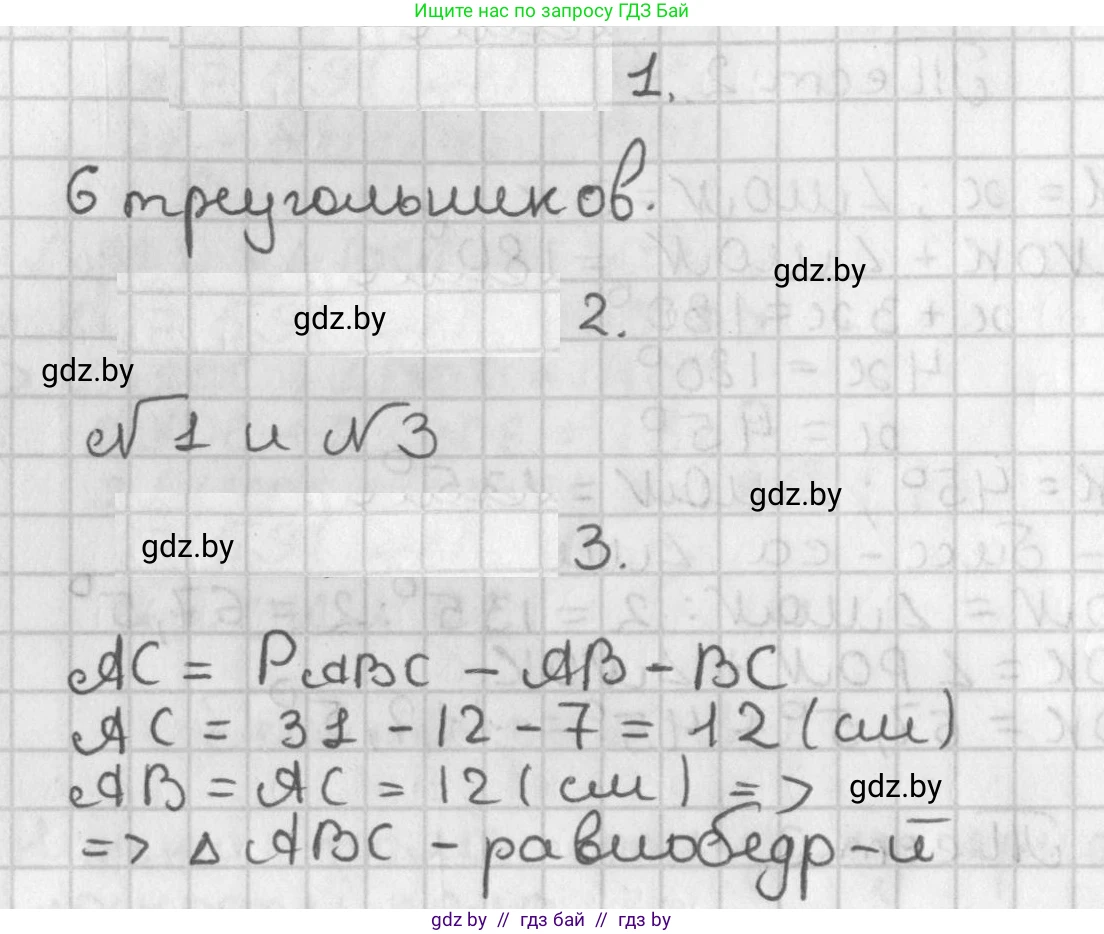 Ищите нас по запросу ГДЗ Бай
1.
6 треугольников.
gdz.by
gdz.by
2.
gdz.by
√1 и √3
gdz.by
gdz.by
3.
AC = PABC - AB - BC
AC = 31 - 12 - 7 = 12 (см)
AB = AC = 12 (см) =>
gdz.by
=> Δ ABC - равнобедр-й
gdz by // гдз бай // гдз by